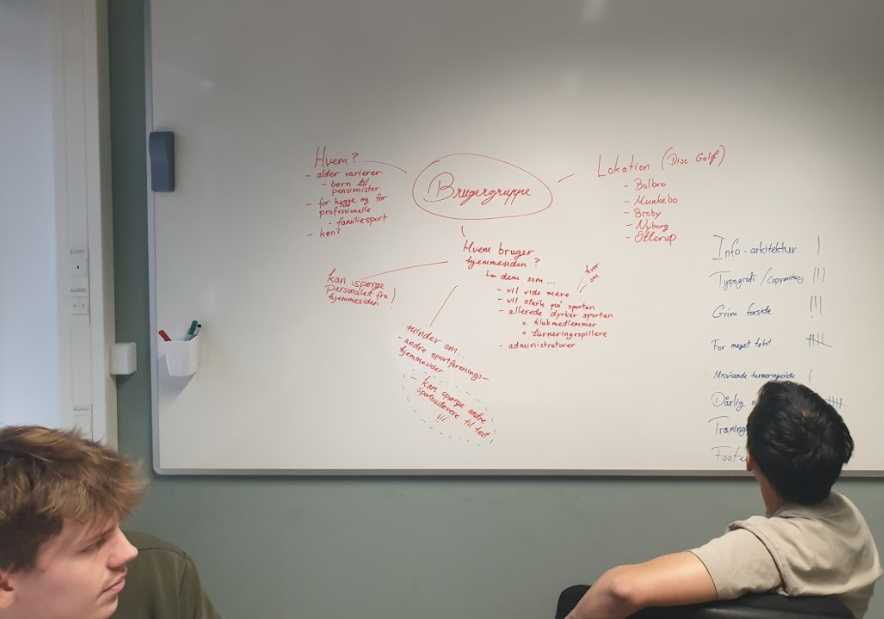 Hvem?
- alder varierer
- børn til
pensimister
- for hygge og for
professionelle
- familiesport
- køn?
Brugergruppe
Lokation (Disc Golf)
- Bolbro
- Munkebo
- Broby
- Nyborg
- Otterup
Hvem bruger
hjemmesiden?
dem som...
- vil vide mere
- vil starte på sporten
- allerede dyrker sporten
o klubmedlemmer
o turneringspillere
- administratorer
kan spørge
personalet fra
hjemmesiden!
minder om...
- andre sportforenings-
hjemmesider
- kan spørge andre
sportsudøvere til test
!!!
Info-arkitektur |
Typografi /
Grim forside |||
For meget tekst
Dårlig